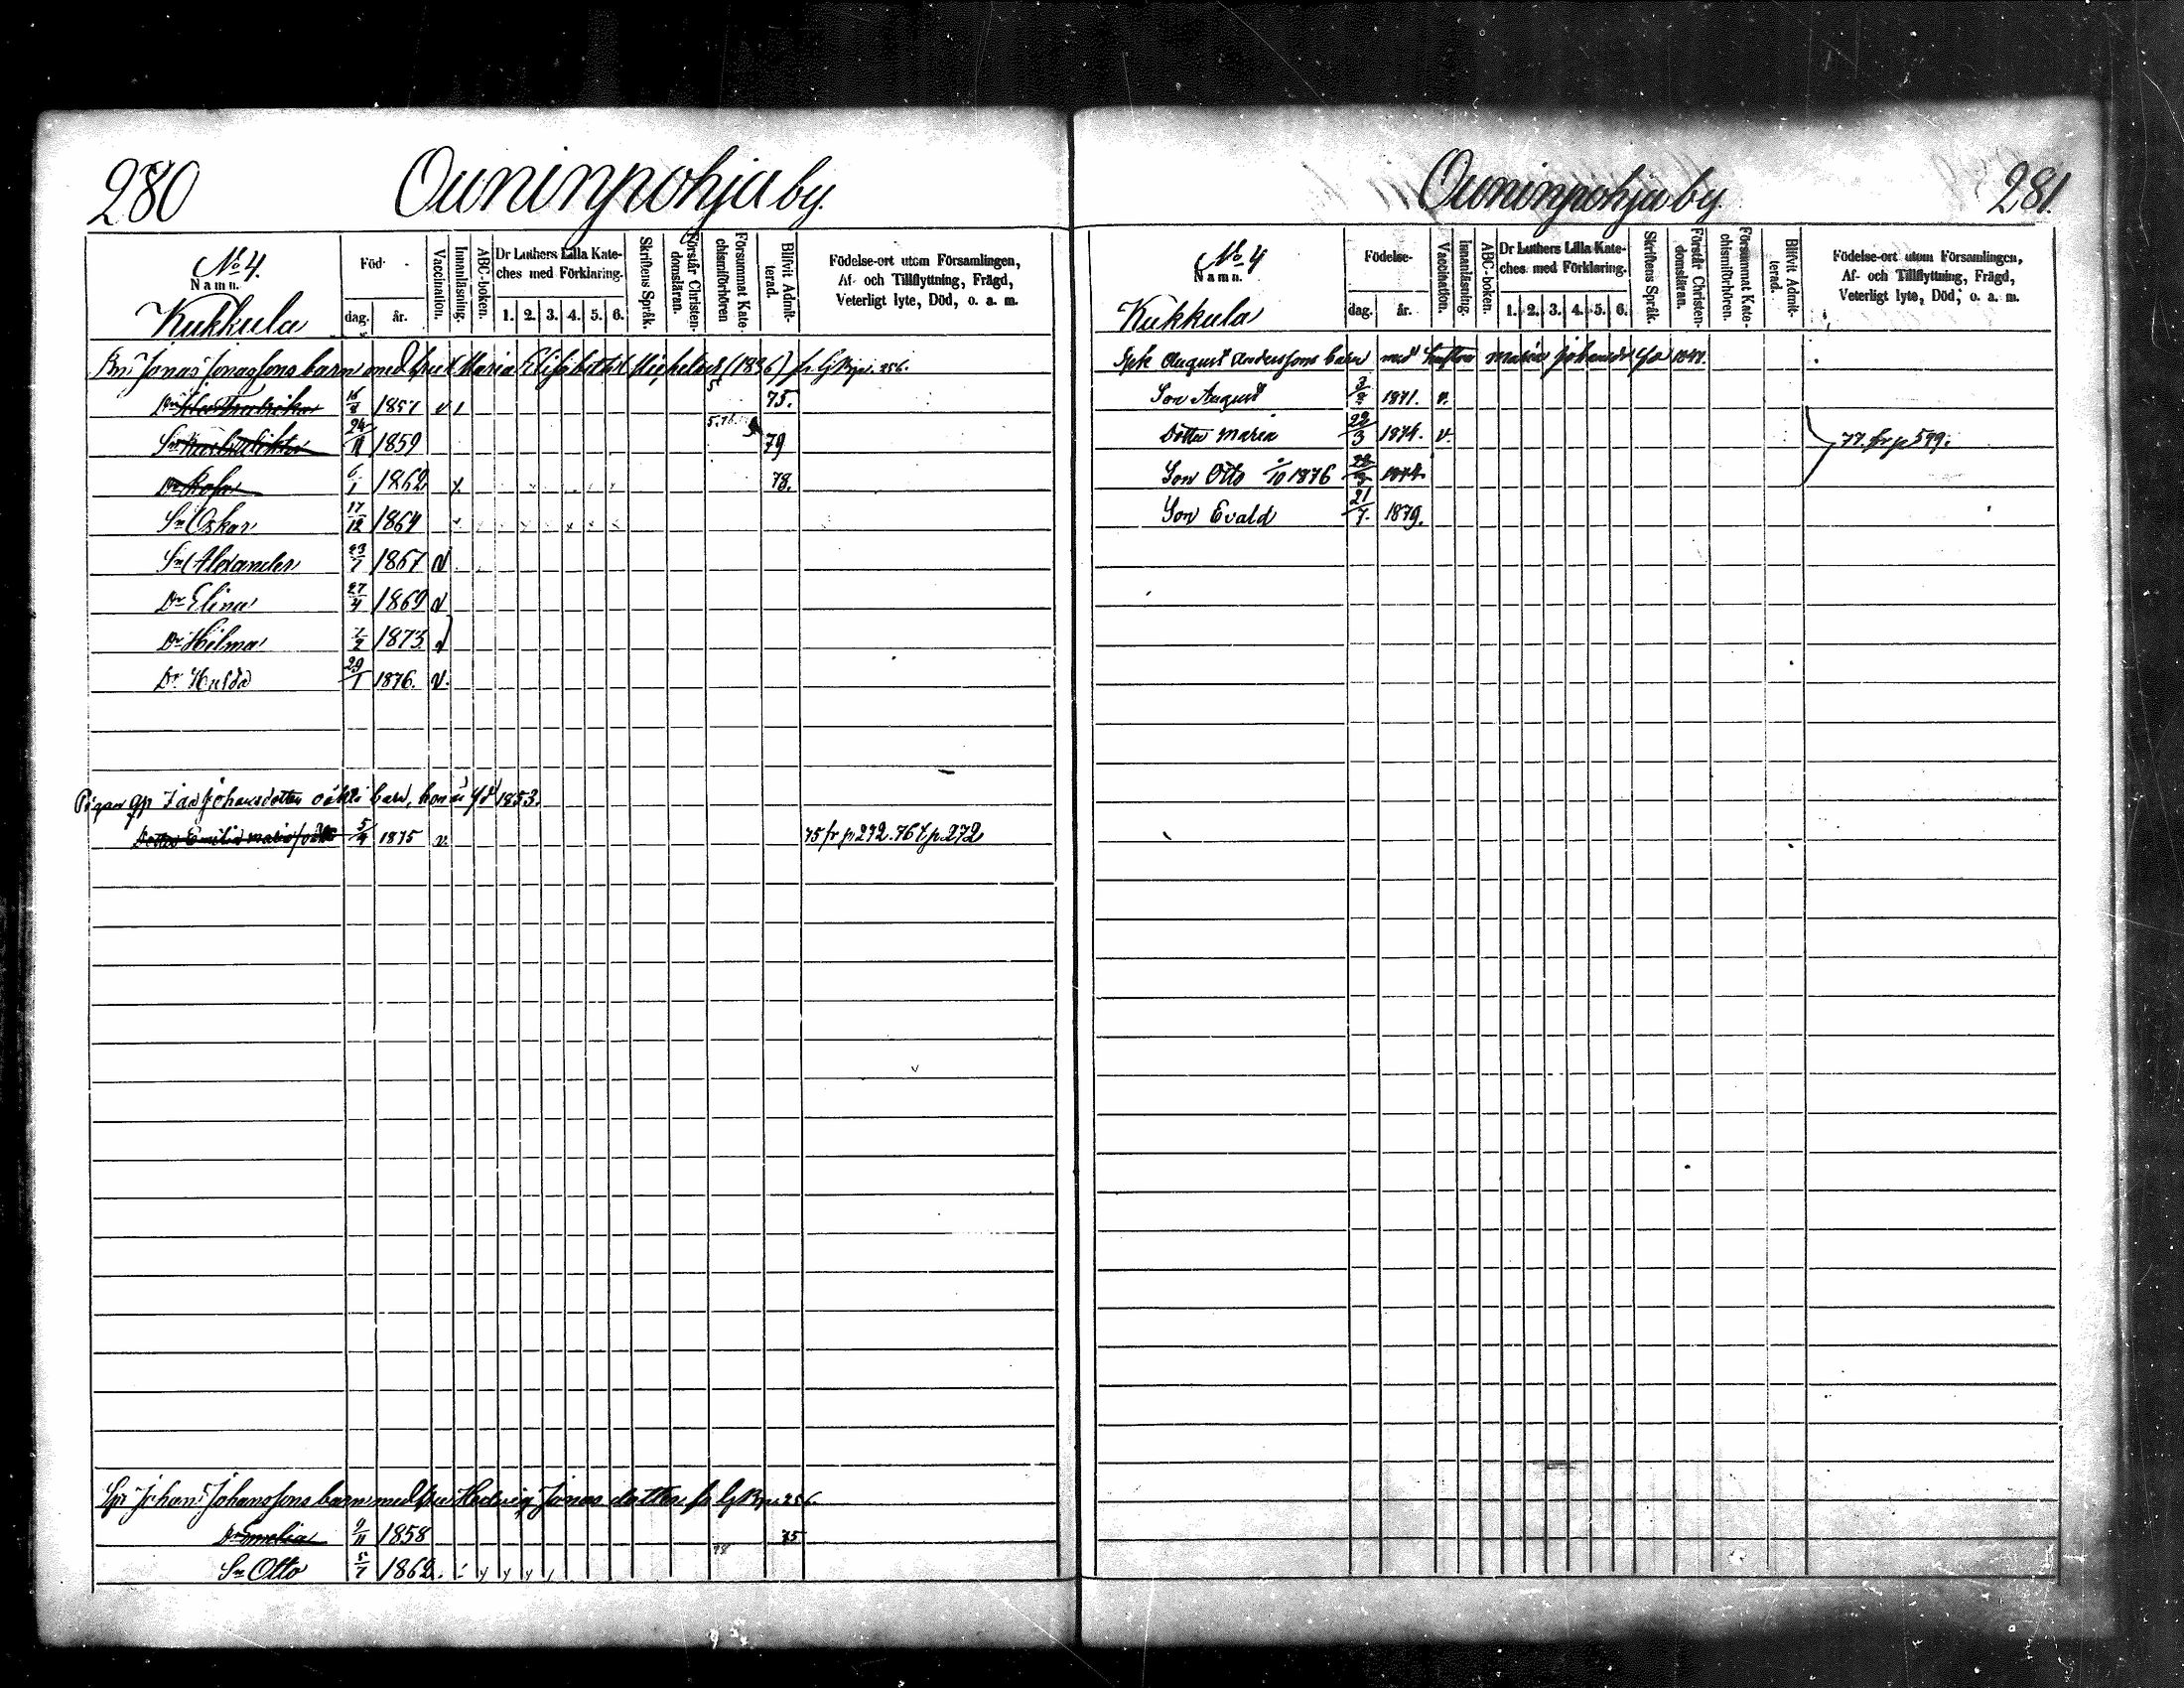 280 Ouninpohja by.
No 4.
Namn.
Kukkula
Föd
dag. år.
Vaccination.
Innanläsning.
ABC-boken.
Dr Luthers Lilla Kateches med Förklaring.
1. 2. 3. 4. 5. 6.
Skriftens Språk.
Förstår Christendomsläran.
Försummat Katechismiförhören
Blifvit Admitterad.
Födelse-ort utom Församlingen,
Af- och Tillflyttning, Frägd,
Veterligt lyte, Död, o. a. m.
Jonas Jonassons barn med hust Maria Elisabeth (1836) 256.
1857 v 75.
24/11 1859 5.76. 79
Dr Rosa 6/1 1862 78.
Sn Oskar 17/12 1864
Sn Alexander 23/7 1867 v
Dr Elina 27/4 1869 v
Dr Hilma 7/2 1873 v
Dr Hulda 29/1 1876. v.
Pigan Ida Johansdotters oäkta barn, hon är 1853.
Dotter Emilia Maria 5/4 1875 v. 75 fr p 272. 76 t. p. 272
Johan Johanssons barn med hu Hedvig Jonasdotter 256
Dr Emelia 9/11 1858 75
Sn Otto 5/7 1862. 78
Ouninpohja by 281.
No 4
Namn.
Kukkula
Födelse-
dag. år.
Vaccination.
Innanläsning.
ABC-boken.
Dr Luthers Lilla Kateches med Förklaring.
1. 2. 3. 4. 5. 6.
Skriftens Språk.
Förstår Christendomsläran.
Försummat Katechismiförhören.
Blifvit Admitterad.
Födelse-ort utom Församlingen,
Af- och Tillflyttning, Frägd,
Veterligt lyte, Död, o. a. m.
August Anderssons barn med hustru Maria
Son August 1871. v.
Dotter Maria 22/3 1874. v. 77. fr p 599.
Son Otto 1876 1874
Son Evald 21/7. 1879.